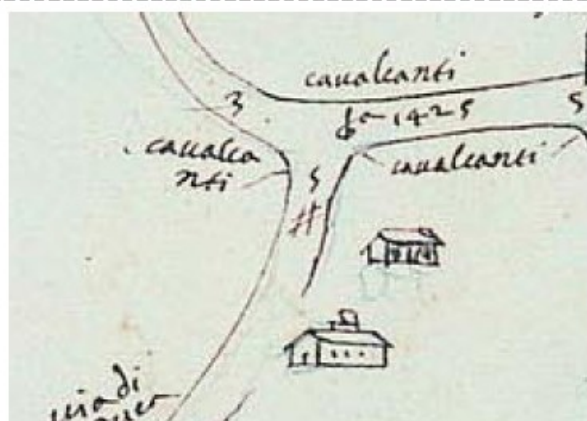 caualcanti
3
ba 1425
5
caualca
nti
caualcanti
5
#
uia di